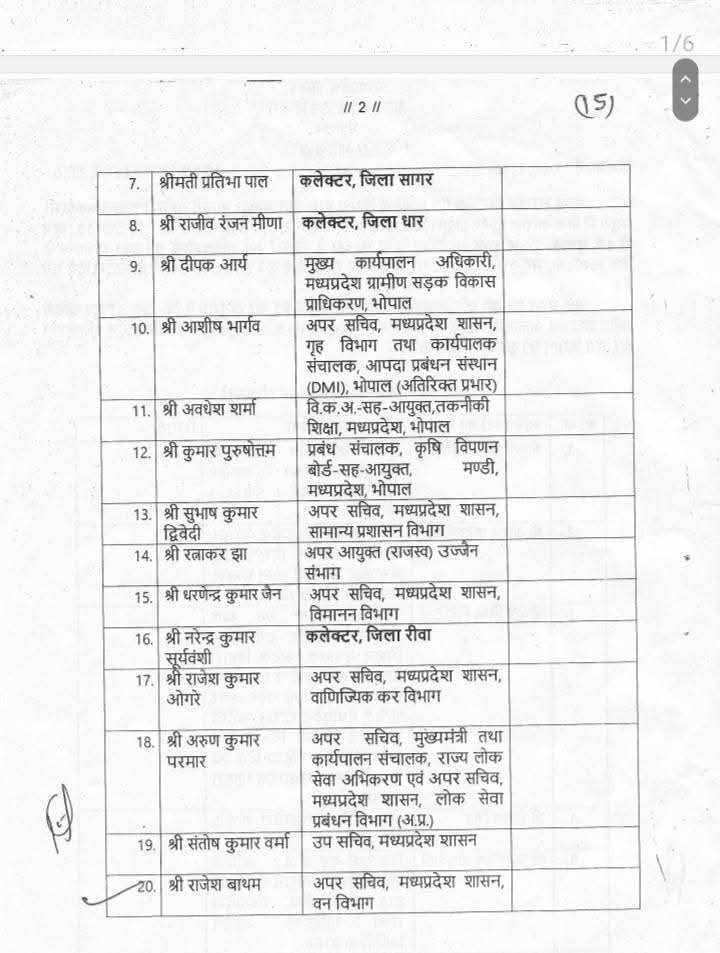 1/6
// 2 //
(15)
7. श्रीमती प्रतिभा पाल कलेक्टर, जिला सागर
8. श्री राजीव रंजन मीणा कलेक्टर, जिला धार
9. श्री दीपक आर्य मुख्य कार्यपालन अधिकारी,
मध्यप्रदेश ग्रामीण सड़क विकास
प्राधिकरण, भोपाल
10. श्री आशीष भार्गव अपर सचिव, मध्यप्रदेश शासन,
गृह विभाग तथा कार्यपालक
संचालक, आपदा प्रबंधन संस्थान
(DMI), भोपाल (अतिरिक्त प्रभार)
11. श्री अवधेश शर्मा वि.क.अ.-सह-आयुक्त,तकनीकी
शिक्षा, मध्यप्रदेश, भोपाल
12. श्री कुमार पुरुषोत्तम प्रबंध संचालक, कृषि विपणन
बोर्ड-सह-आयुक्त, मण्डी,
मध्यप्रदेश, भोपाल
13. श्री सुभाष कुमार अपर सचिव, मध्यप्रदेश शासन,
द्विवेदी सामान्य प्रशासन विभाग
14. श्री रत्नाकर झा अपर आयुक्त (राजस्व) उज्जैन
संभाग
15. श्री धरणेन्द्र कुमार जैन अपर सचिव, मध्यप्रदेश शासन,
विमानन विभाग
16. श्री नरेन्द्र कुमार कलेक्टर, जिला रीवा
सूर्यवंशी
17. श्री राजेश कुमार अपर सचिव, मध्यप्रदेश शासन,
ओगरे वाणिज्यिक कर विभाग
18. श्री अरुण कुमार अपर सचिव, मुख्यमंत्री तथा
परमार कार्यपालन संचालक, राज्य लोक
सेवा अभिकरण एवं अपर सचिव,
मध्यप्रदेश शासन, लोक सेवा
प्रबंधन विभाग (अ.प्र.)
19. श्री संतोष कुमार वर्मा उप सचिव, मध्यप्रदेश शासन
20. श्री राजेश बाथम अपर सचिव, मध्यप्रदेश शासन,
वन विभाग